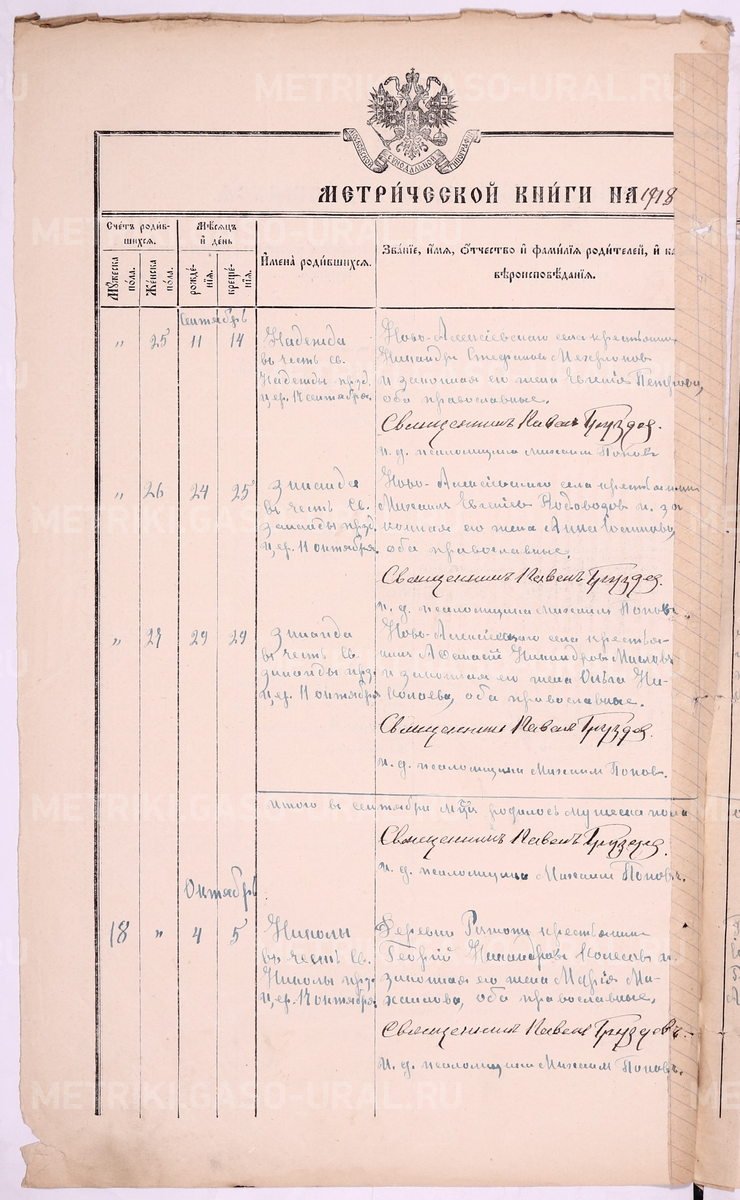 METRIKI.GASO-URAL.RU
МОСКОВСКОЙ СѴНОДАЛЬНОЙ ТИПОГРАФІИ
МЕТРИ́ЧЕСКОЙ КНИ́ГИ НА 1918
Сче́тъ роди́в-
шихся.
Му́жеска по́ла.
Же́нска по́ла.
Мѣ́сяцъ
и҆ де́нь
рожде́нїя.
креще́нїя.
И҆мена̀ роди́вшихся.
Зва́нїе, и҆́мя, ѻ҆́тчество и҆ фами́лїя роди́телей, и҆ ка
вѣроисповѣ́данїя.
Сентябрь
" 25 11 14
Надежда
въ честь св.
Надежды празд.
ц. ер. 17 сентября.
Ново-Алексѣевскаго села крестьянинъ
Никандръ Стефановъ
и законная его жена Евгенія Петрова,
оба православные.
Священникъ Павелъ Груздев.
и. д. псаломщика Михаил Попов
" 26 24 25
Зинаида
въ честь св.
Зинаиды празд.
ц. ер. 11 октября.
Ново-Алексѣевскаго села крестьянинъ
Михаил Евгеніев и за
конная его жена Анна
оба православные.
Священникъ Павелъ Груздев.
и. д. псаломщика Михаил Поповъ
" 27 29 29
Зинаида
въ честь Св.
Зинаиды празд.
ц. ер. 11 октября
Ново-Алексѣевскаго села крестья-
нинъ Афанасій Никандровъ Масловъ
и законная его жена Ольга Ни-
колаева, оба православные.
Священникъ Павелъ Груздев.
и. д. псаломщика Михаил Попов.
Итого въ сентябрѣ м-цѣ родилось мужеска пола
Священникъ Павелъ Груздев.
и. д. псаломщика Михаил Поповъ.
Октябрь
18 " 4 5
въ честь Св.
празд.
ц. ер. 17 октября.
Деревни крестьянинъ
Георгій Никандровъ Колесов и
законная его жена Марія Ми-
хаилова, оба православные.
Священникъ Павелъ Груздевъ.
и. д. псаломщика Михаил Поповъ.